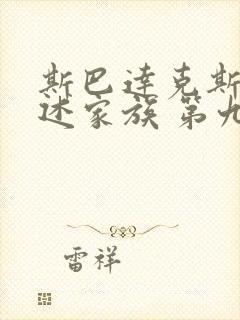 斯巴达克斯
述家族 第九
雷祥